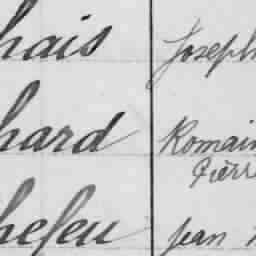 hais Joseph
hard Romain
Pierre
hefeu Jean